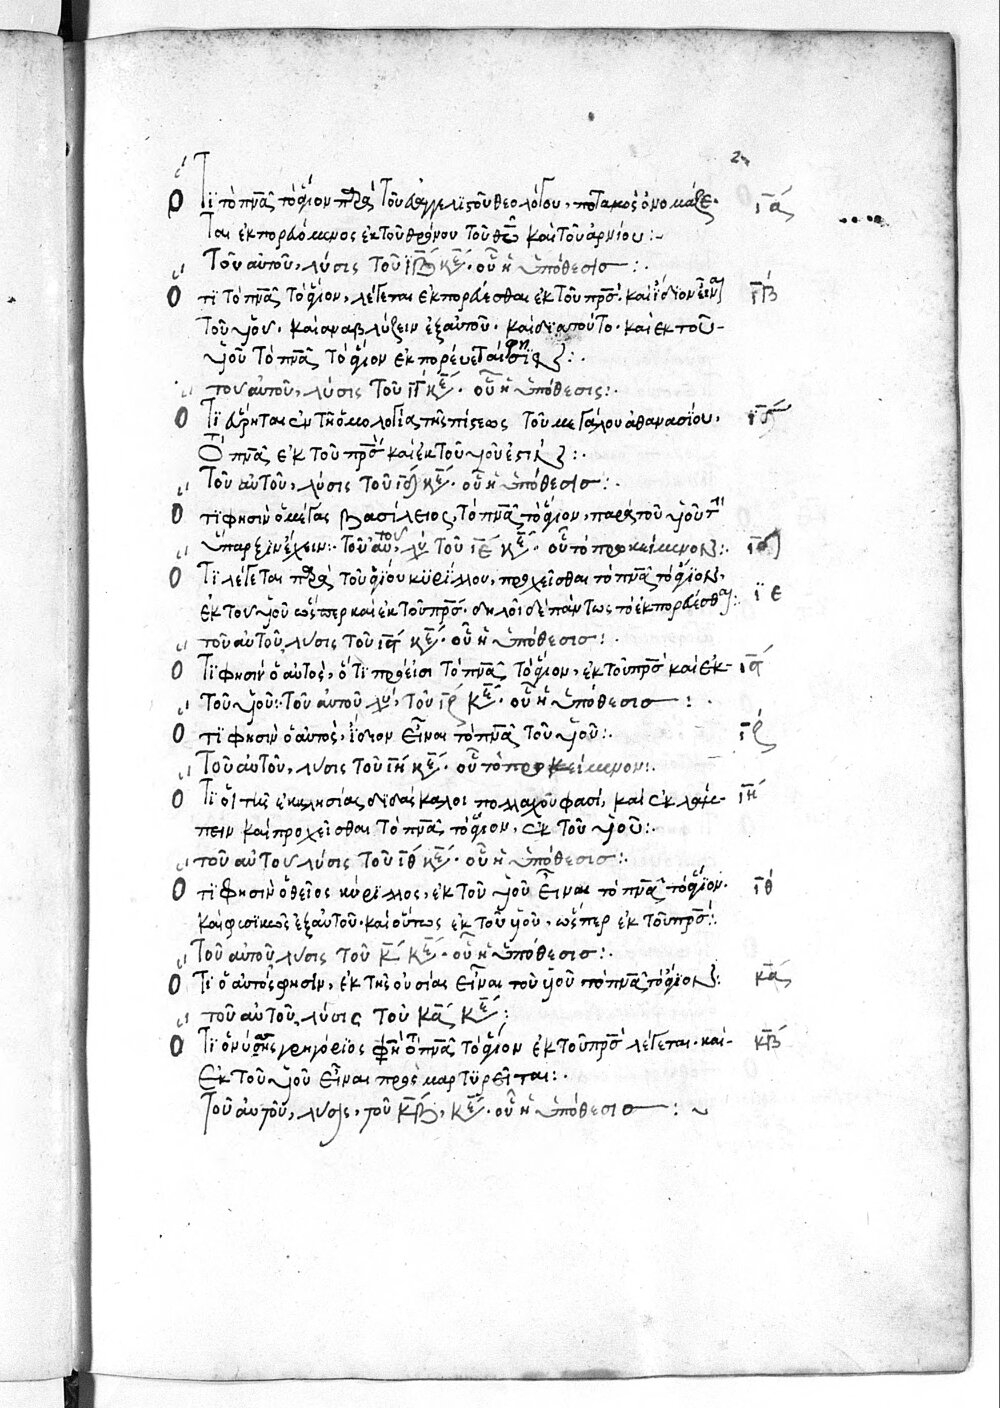 2
Ὅτι τὸ πν̅α̅ τὸ ἅγιον παρὰ τοῦ εὐαγγελιστοῦ θεολόγου, ποταμὸς ὀνομάζε· ια
ται ἐκπορευόμενος ἐκ τοῦ θρόνου τοῦ θ̅υ̅ καὶ τοῦ ἀρνίου:~
Τοῦ αὐτοῦ, λύσις τοῦ ιβ κε̅φ. οὗ ἡ ὑπόθεσις:
Ὅτι τὸ πν̅α̅ τὸ ἅγιον, λέγεται ἐκπορεύεσθαι ἐκ τοῦ πρ̅ς̅· καὶ ἴδιον εἶναι ιβ
τοῦ υἱοῦ· καὶ ἀναβλύζειν ἐξ αὐτοῦ· καὶ διὰ τοῦτο· καὶ ἐκ τοῦ
υἱοῦ τὸ πν̅α̅ τὸ ἅγιον ἐκπορεύεται
τοῦ αὐτοῦ, λύσις τοῦ ιγ κε̅φ. οὗ ἡ ὑπόθεσις:
Ὅτι εἴρηται ἐν τῇ ὁμολογίᾳ τῆς πίστεως τοῦ μεγάλου ἀθανασίου,
τὸ πν̅α̅ ἐκ τοῦ πρ̅ς̅ καὶ ἐκ τοῦ υἱοῦ ἐστίν:
Τοῦ αὐτοῦ, λύσις τοῦ ιδ κε̅φ. οὗ ἡ ὑπόθεσις:
Ὅτι φησὶν ὁ μέγας βασίλειος, τὸ πν̅α̅ τὸ ἅγιον, παρὰ τοῦ υἱοῦ τὴν
ὕπαρξιν ἔχειν: Τοῦ αὐτοῦ, λύ τοῦ ιε κε̅φ. οὗ τὸ προκείμενον: ιδ
Ὅτι λέγεται παρὰ τοῦ ἁγίου κυρίλλου, προχεῖσθαι τὸ πν̅α̅ τὸ ἅγιον,
ἐκ τοῦ υἱοῦ ὥσπερ καὶ ἐκ τοῦ πρ̅ς̅· δηλοῖ δὲ πάντως τὸ ἐκπορεύεσθαι: ιε
τοῦ αὐτοῦ λύσις τοῦ ις κε̅φ. οὗ ἡ ὑπόθεσις:
Ὅτι φησὶν ὁ αὐτὸς, ὅτι πρόεισι τὸ πν̅α̅ τὸ ἅγιον, ἐκ τοῦ πρ̅ς̅ καὶ ἐκ ις
τοῦ υἱοῦ: Τοῦ αὐτοῦ λύ, τοῦ ιζ κε̅φ. οὗ ἡ ὑπόθεσις:
Ὅτι φησὶν ὁ αὐτὸς, ἴδιον εἶναι τὸ πν̅α̅ τοῦ υἱοῦ: ιζ
Τοῦ αὐτοῦ, λύσις τοῦ ιη κε̅φ. οὗ τὸ προκείμενον:
Ὅτι οἱ τῆς ἐκκλησίας διδάσκαλοι πολλαχοῦ φασί, καὶ ἐκλάμ- ιη
πειν καὶ προχεῖσθαι τὸ πν̅α̅ τὸ ἅγιον, ἐκ τοῦ υἱοῦ:
τοῦ αὐτοῦ λύσις τοῦ ιθ κε̅φ. οὗ ἡ ὑπόθεσις:
Ὅτι φησὶν ὁ θεῖος κύριλλος, ἐκ τοῦ υἱοῦ εἶναι τὸ πν̅α̅ τὸ ἅγιον· ιθ
καὶ φυσικῶς ἐξ αὐτοῦ· καὶ οὕτως ἐκ τοῦ υἱοῦ, ὥσπερ ἐκ τοῦ πρ̅ς̅:
Τοῦ αὐτοῦ λύσις τοῦ κ κε̅φ. οὗ ἡ ὑπόθεσις:
Ὅτι ὁ αὐτός φησίν, ἐκ τῆς οὐσίας εἶναι τοῦ υἱοῦ τὸ πν̅α̅ τὸ ἅγιον: κα
τοῦ αὐτοῦ λύσις τοῦ κα κε̅φ:
Ὅτι ὁ νύσσης γρηγόριος φησὶ τὸ πν̅α̅ τὸ ἅγιον ἐκ τοῦ πρ̅ς̅ λέγεται· καὶ κβ
ἐκ τοῦ υἱοῦ εἶναι προσμαρτυρεῖται:
Τοῦ αὐτοῦ, λύσις, τοῦ κβ, κε̅φ. οὗ ἡ ὑπόθεσις:~